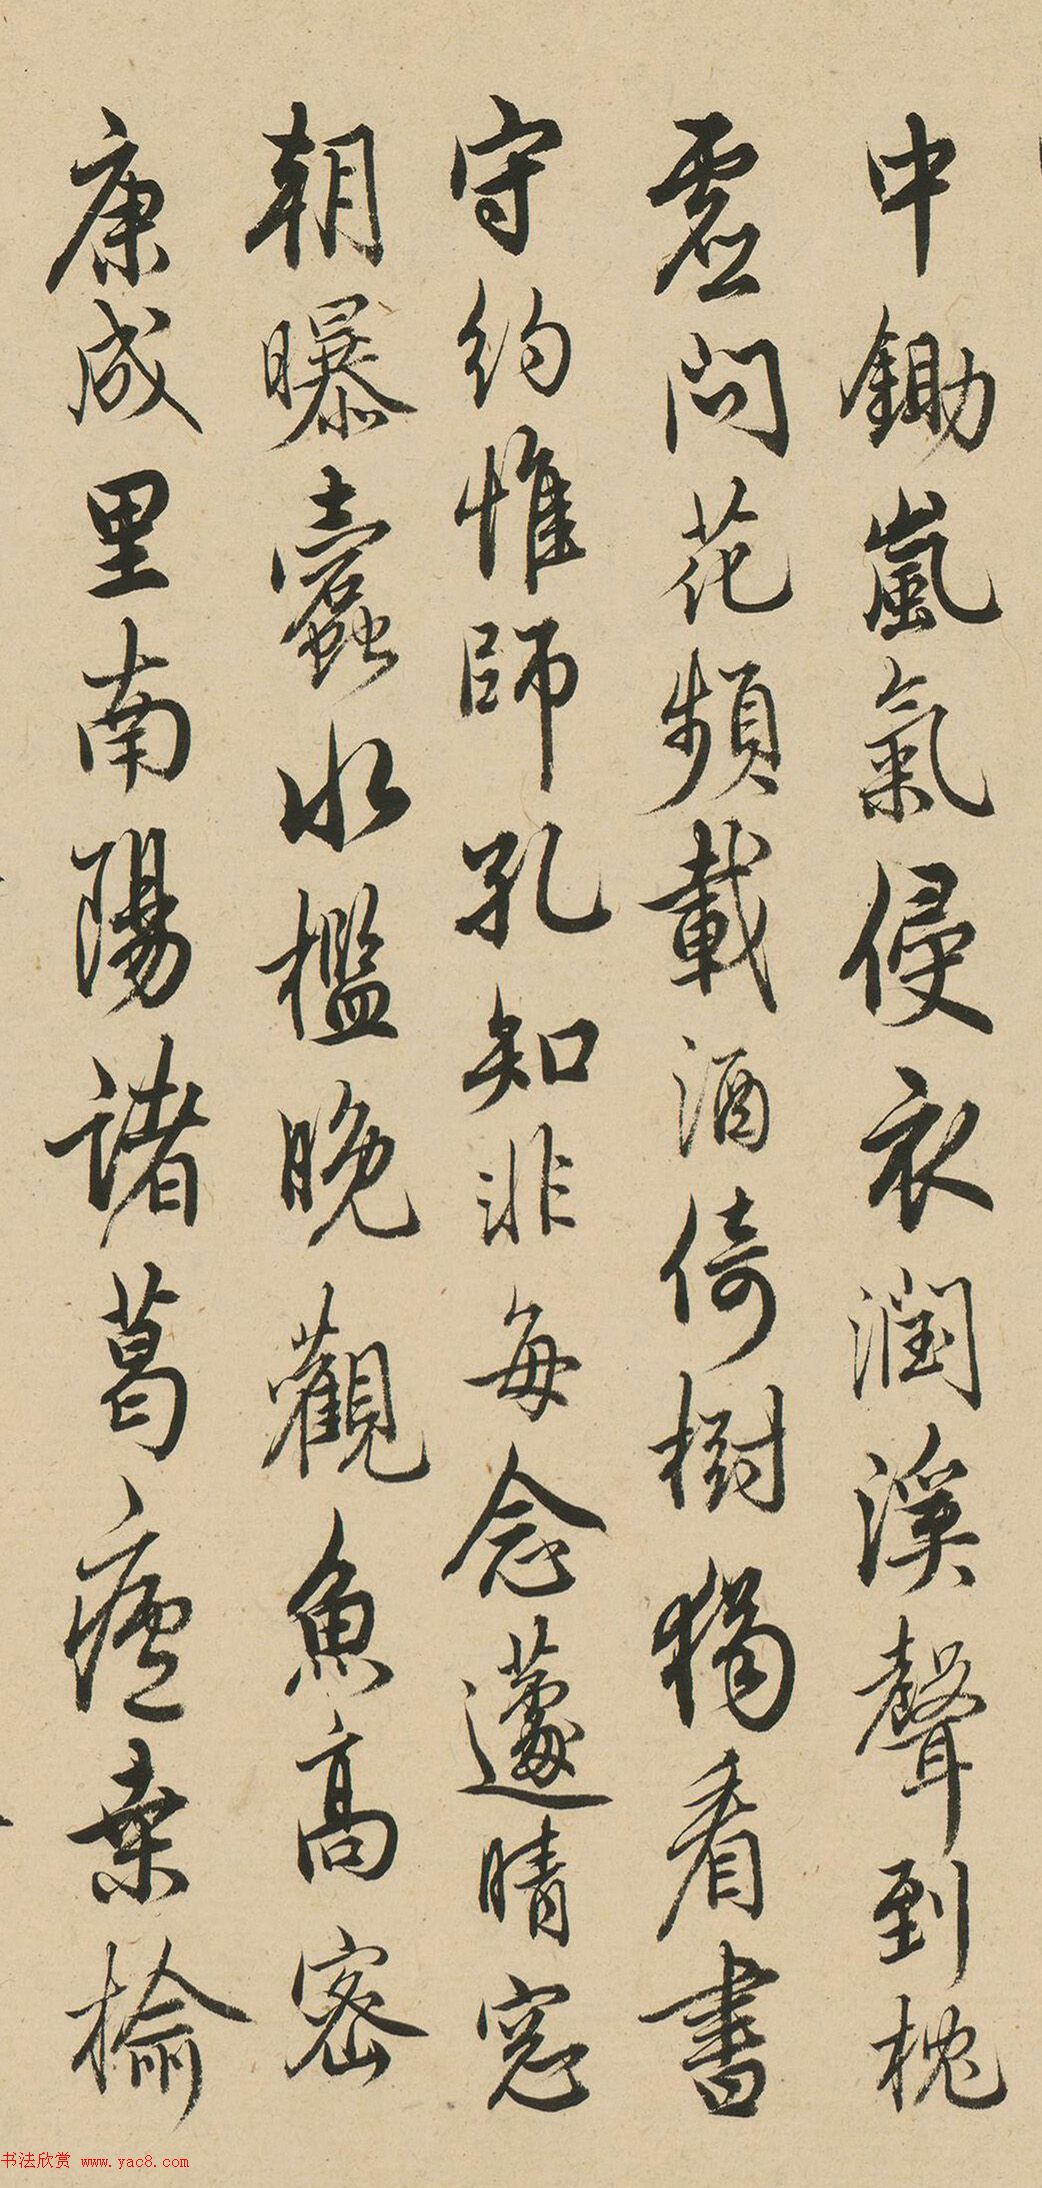 中鋤嵐氣侵衣潤溪聲到枕
虛問花頻載酒倚樹獨看書
守約惟師孔知非每念蘧晴窓
朝曝蠹水檻晚觀魚高密
康成里南陽諸葛廬桑榆
书法欣赏 www.yac8.com